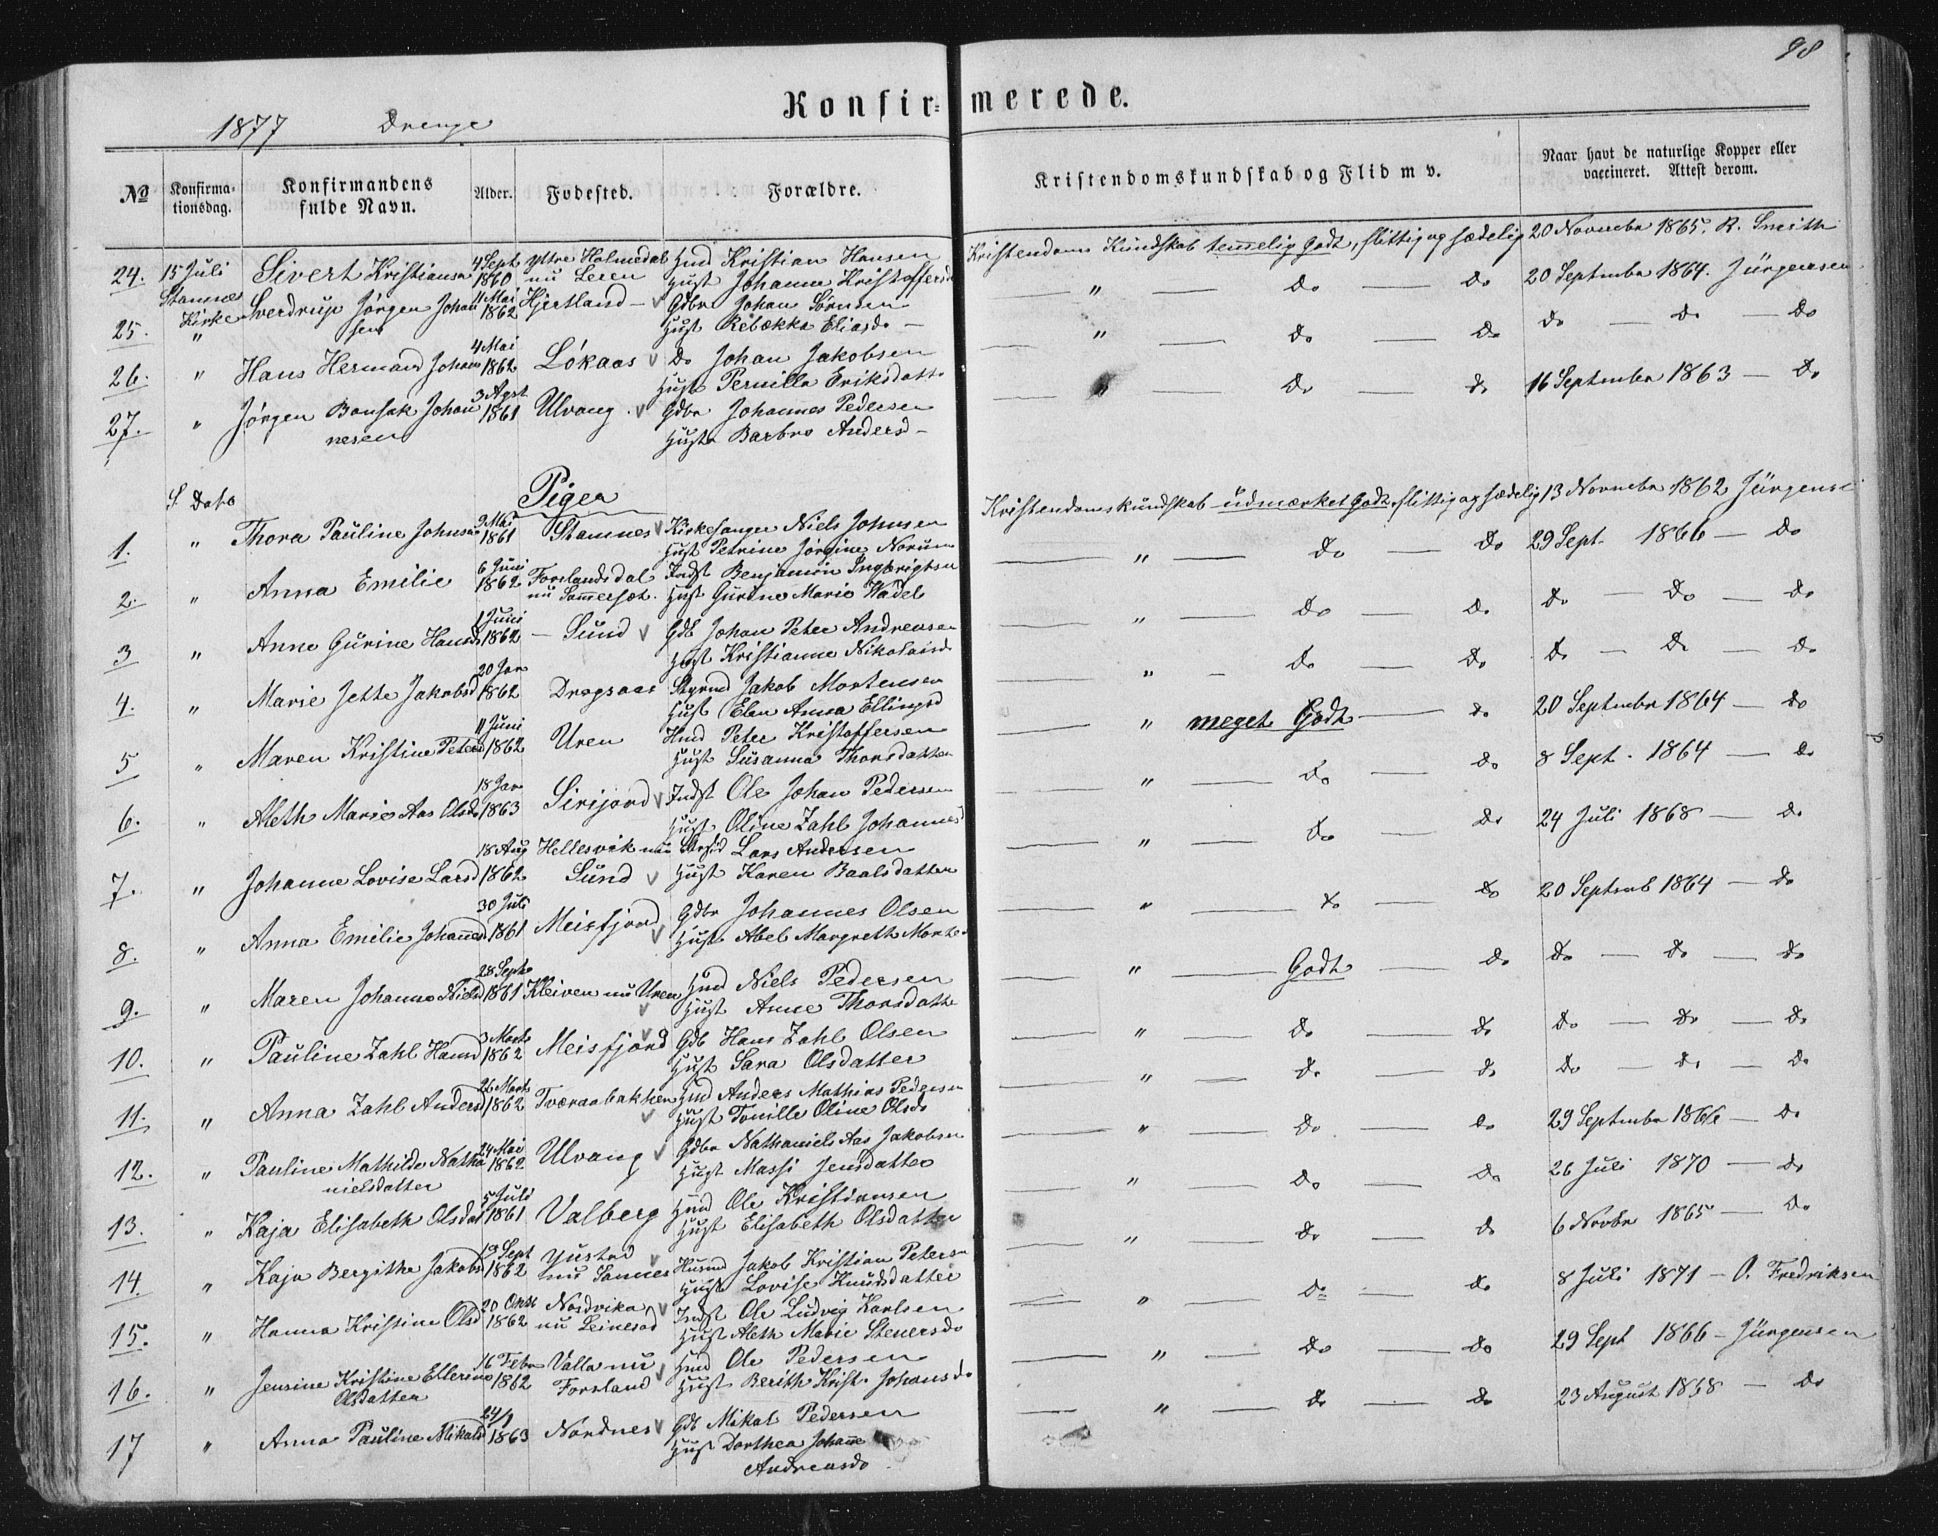 98
Konfir= merede.
1877 Drenge
No Konfirmationsdag. Konfirmandens fulde Navn. Alder. Fødested. Forældre. Kristendomskundskab og Flid m v. Naar havt de naturlige Kopper eller vaccineret. Attest derom.
24. 15 Juli Sivert Kristiansen 4 Sept 1860 Yttre Holmedal nu Leren Hmd Kristian Hansen Kristendoms Kundskab temmelig Godt, flittig og sædelig 20 November 1865. R. Smith
Stamnes Kirke Hust Johanna Kristoffersd
25. " Sverdrup Jørgen Johansen 11 Mai 1862 Hjertland – Gdbr Johan Sørensen " Do Do 20 September 1864. Jürgensen
Hust Rebække Eliasd –
26. " Hans Hermand Johans 4 Mai 1862 Løkaas Do Johan Jakobsen " Do Do Do – Do – Do
Hust Pernilla Eriksdatt
27. " Jørgen Bonsak Johannesen 3 Agst 1861 Ulvang Gdbr Johannes Pedersen " Do Do 16 September 1863 – Do
Hust Barbro Andersd –
S. Dato Piger
1. " Thora Pauline Johnsen 9 Mai 1861 Stamnes Kirkesanger Niels Johnsen Kristendomskundskab udmærket Godt, flittig og sædelig 13 November 1862 Jürgense
Hust Petrine Jørgine Norum
2. " Anna Emilie 6 Juni 1862 Forslandsdal nu Sommersæt. Indst Benjamin Ingbrigtsen " Do Do 29 Sept. 1866 – Do
Hust Gurine Marie Wadel
3 " Anne Gurine Hansd 1 Juni 1862 – Sund Gdb Johan Peter Andreasen " Do Do Do – Do – Do
Hust Kristianne Nikolaisd
4. " Marie Jette Jakobsd 20 Jan 1862 Dragsaas Styrmd Jakob Mortensen " – Do Do Do – Do – Do
Hust Elen Anna Ellingsd
5 " Maren Kristine Petersd 11 Juni 1862 Uren Hmd Peter Kristoffersen " meget Godt Do 20 September 1864 – Do
Hust Susanna Thorsdatter
6. " Aleth Marie Aas Olsd 18 Jan 1863 Sirijord Indst Ole Johan Pedersen " Do Do 8 Sept. 1864 – Do
Hust Oline Zahl Johannesd
7. " Johanne Lovise Larsd 18 Aug 1862 Hellesvik nu Sund Lars Andersen " Do Do 24 Juli 1868 – Do
Hust Karen Baalsdatter
8. " Anna Emilie Johannesd 30 Juli 1861 Meisfjord Gdbr Johannes Olsen " Do Do 20 Septemb 1864 – Do
Hust Abel Margreth Mort
9. " Maren Johanna Nielsd 28 Sept 1861 Kleiven nu Uren Hmd Niels Pedersen " Godt Do Do – Do – Do
Hust Anne Thorsdatt
10. " Pauline Zahl Hansd 3 Marts 1862 Meisfjord Gdb Hans Zahl Olsen " Do Do Do – Do – Do
Hust Sara Olsdatter
11. " Anna Zahl Andersd 26 Mart 1862 Tværaabakken Hmd Anders Mathias Pedersen " Do Do Do – Do – Do
Hust Tonille Oline Olsd
12. " Pauline Mathilde Nathanielsdatter 24 Mai 1862 Ulvang Gdbr Nathaniels Aas Jakobsen " Do Do 29 September 1866 – Do
Hust Massi Jensdatter
13. " Kaja Elisabeth Olsdat 5 Juli 1861 Valberg Hmd Ole Kristiansen " Do Do 26 Juli 1870 – Do
Hust Elisabeth Olsdatter
14. " Kaja Bergithe Jakobsd 19 Sept 1862 Ylistad nu Sannes Husmd Jakob Kristian Petersn " Do Do 6 Novbr 1865 – Do
Hust Lovise Knudsdatter
15. " Hanna Kristine Olsd 20 1862 Nordvika nu Leinesod Indst Ole Ludvig Karlsen " Do Do 8 Juli 1871 – O. Fredriksen
Hust Aleth Marie Stenersd
16. " Jensine Kristine Ellerine Olsdatter 16 Febr 1862 Valla nu Forsland Hmd Ole Pedersen " Do Do 29 Sept 1866 – Jürgensen
Hust Berith Krist. Johansd
17 " Anna Pauline Mikalsd 24/1 1863 Nordnes Gdb Mikal Pedersen " Do Do 23 August 1868 – Do
Hust Dorthea Johanne
Andreasd